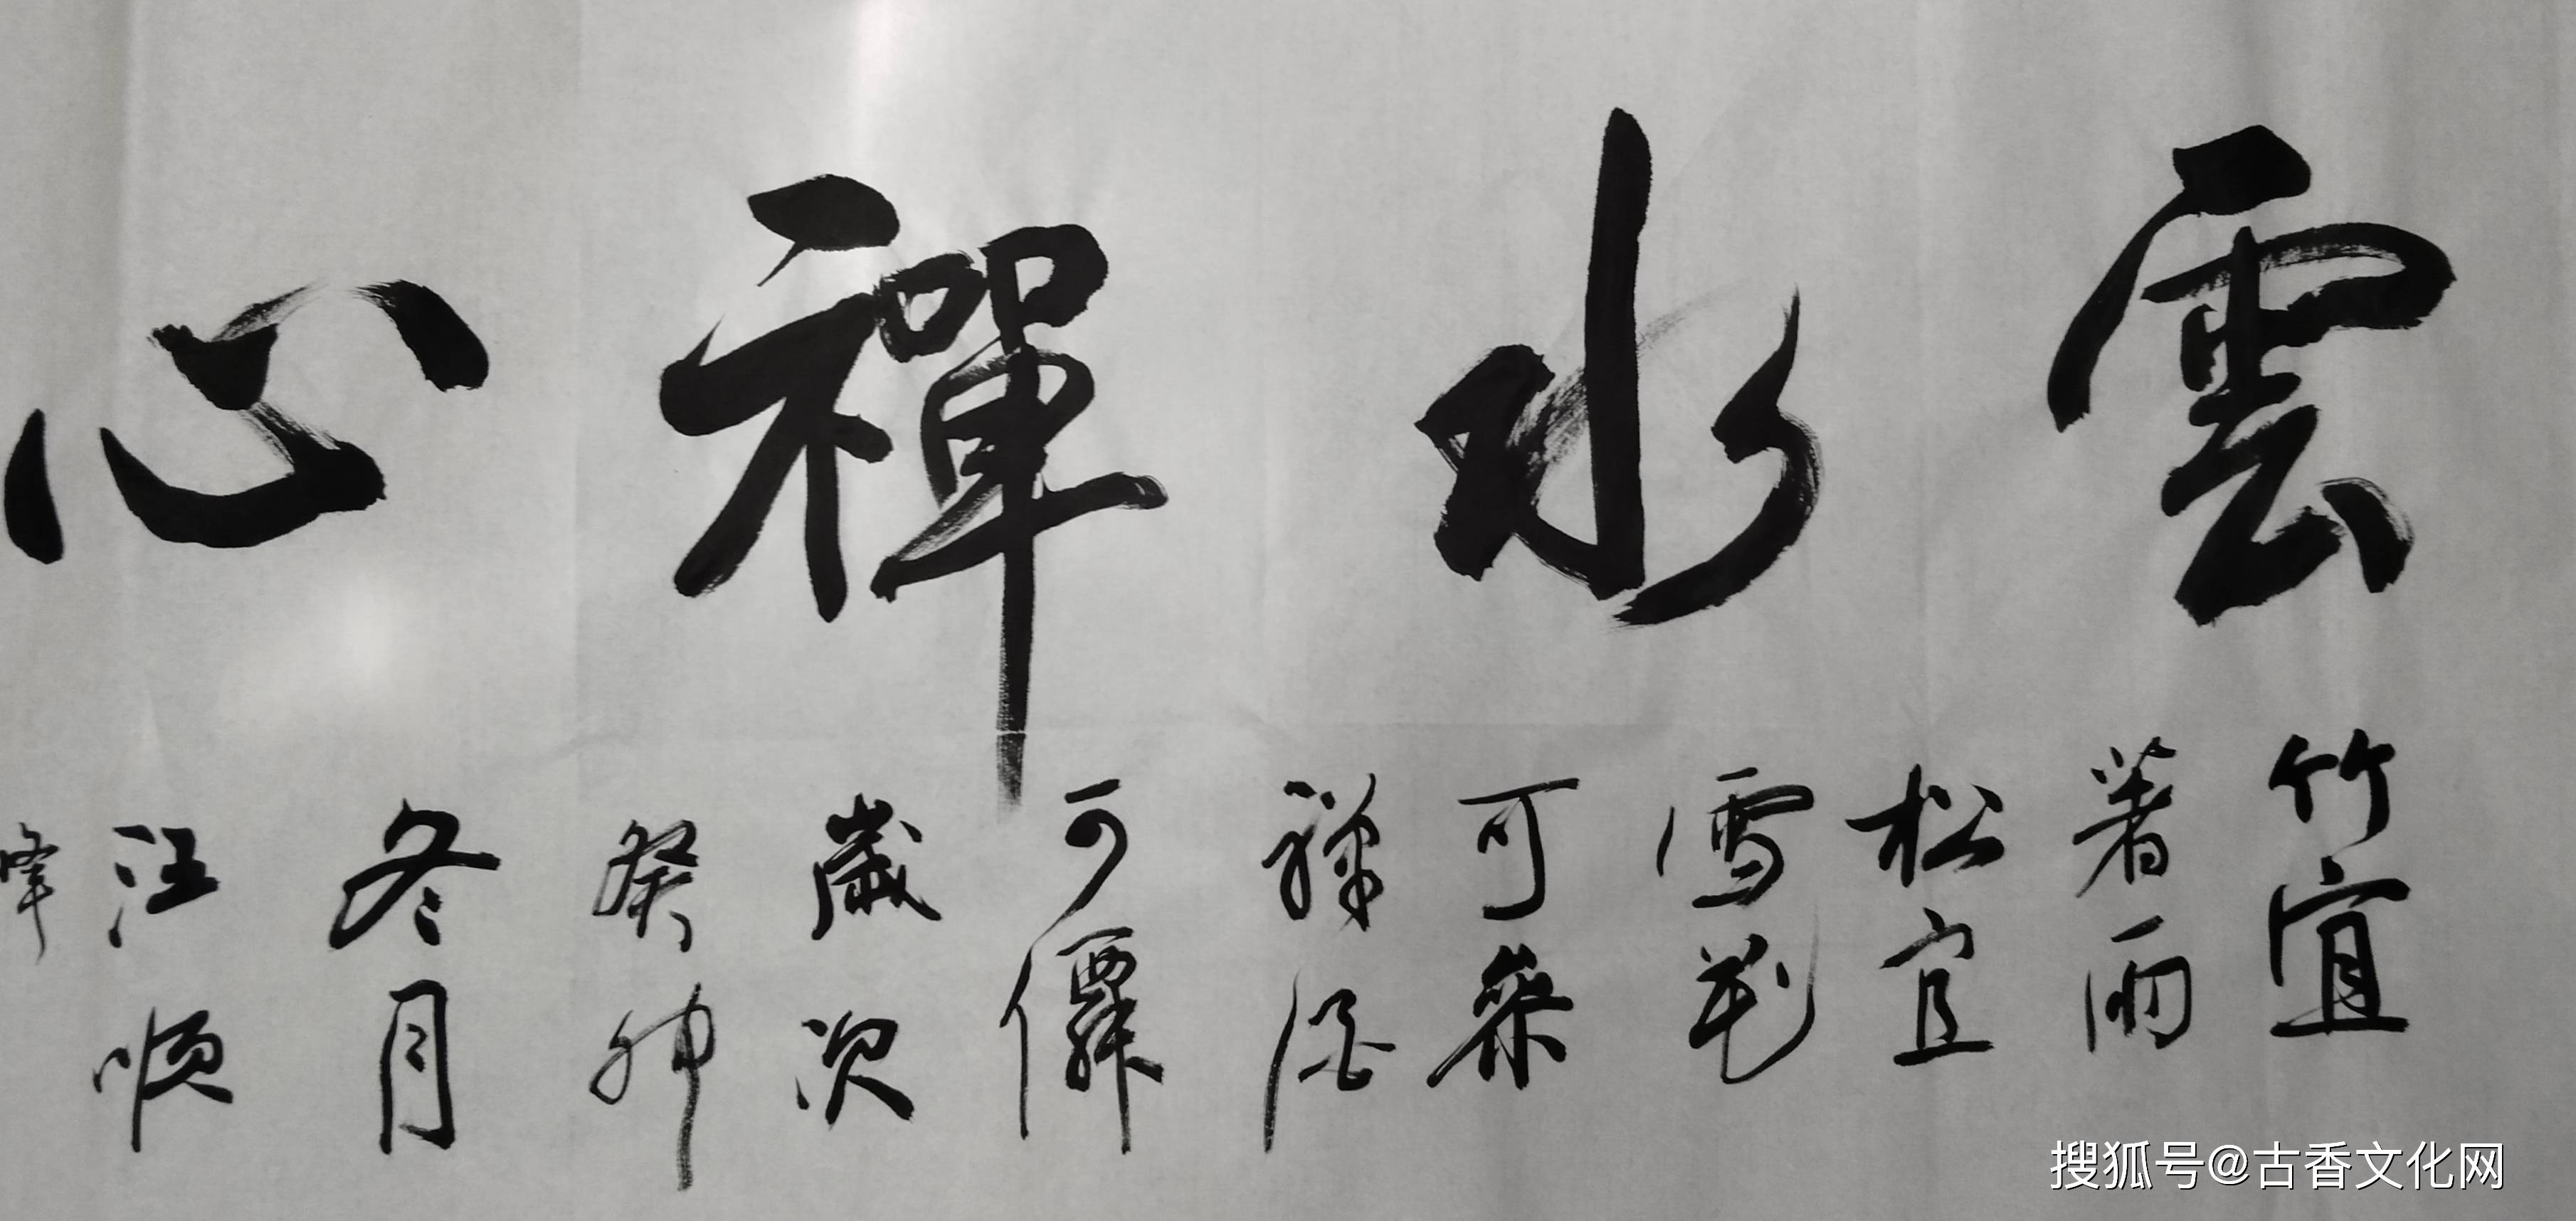 雲水禪心
竹宜
著雨
松宜
雪花
可參
禪酒
可僊
歲次
癸卯
冬月
汪順
峰
搜狐号@古香文化网